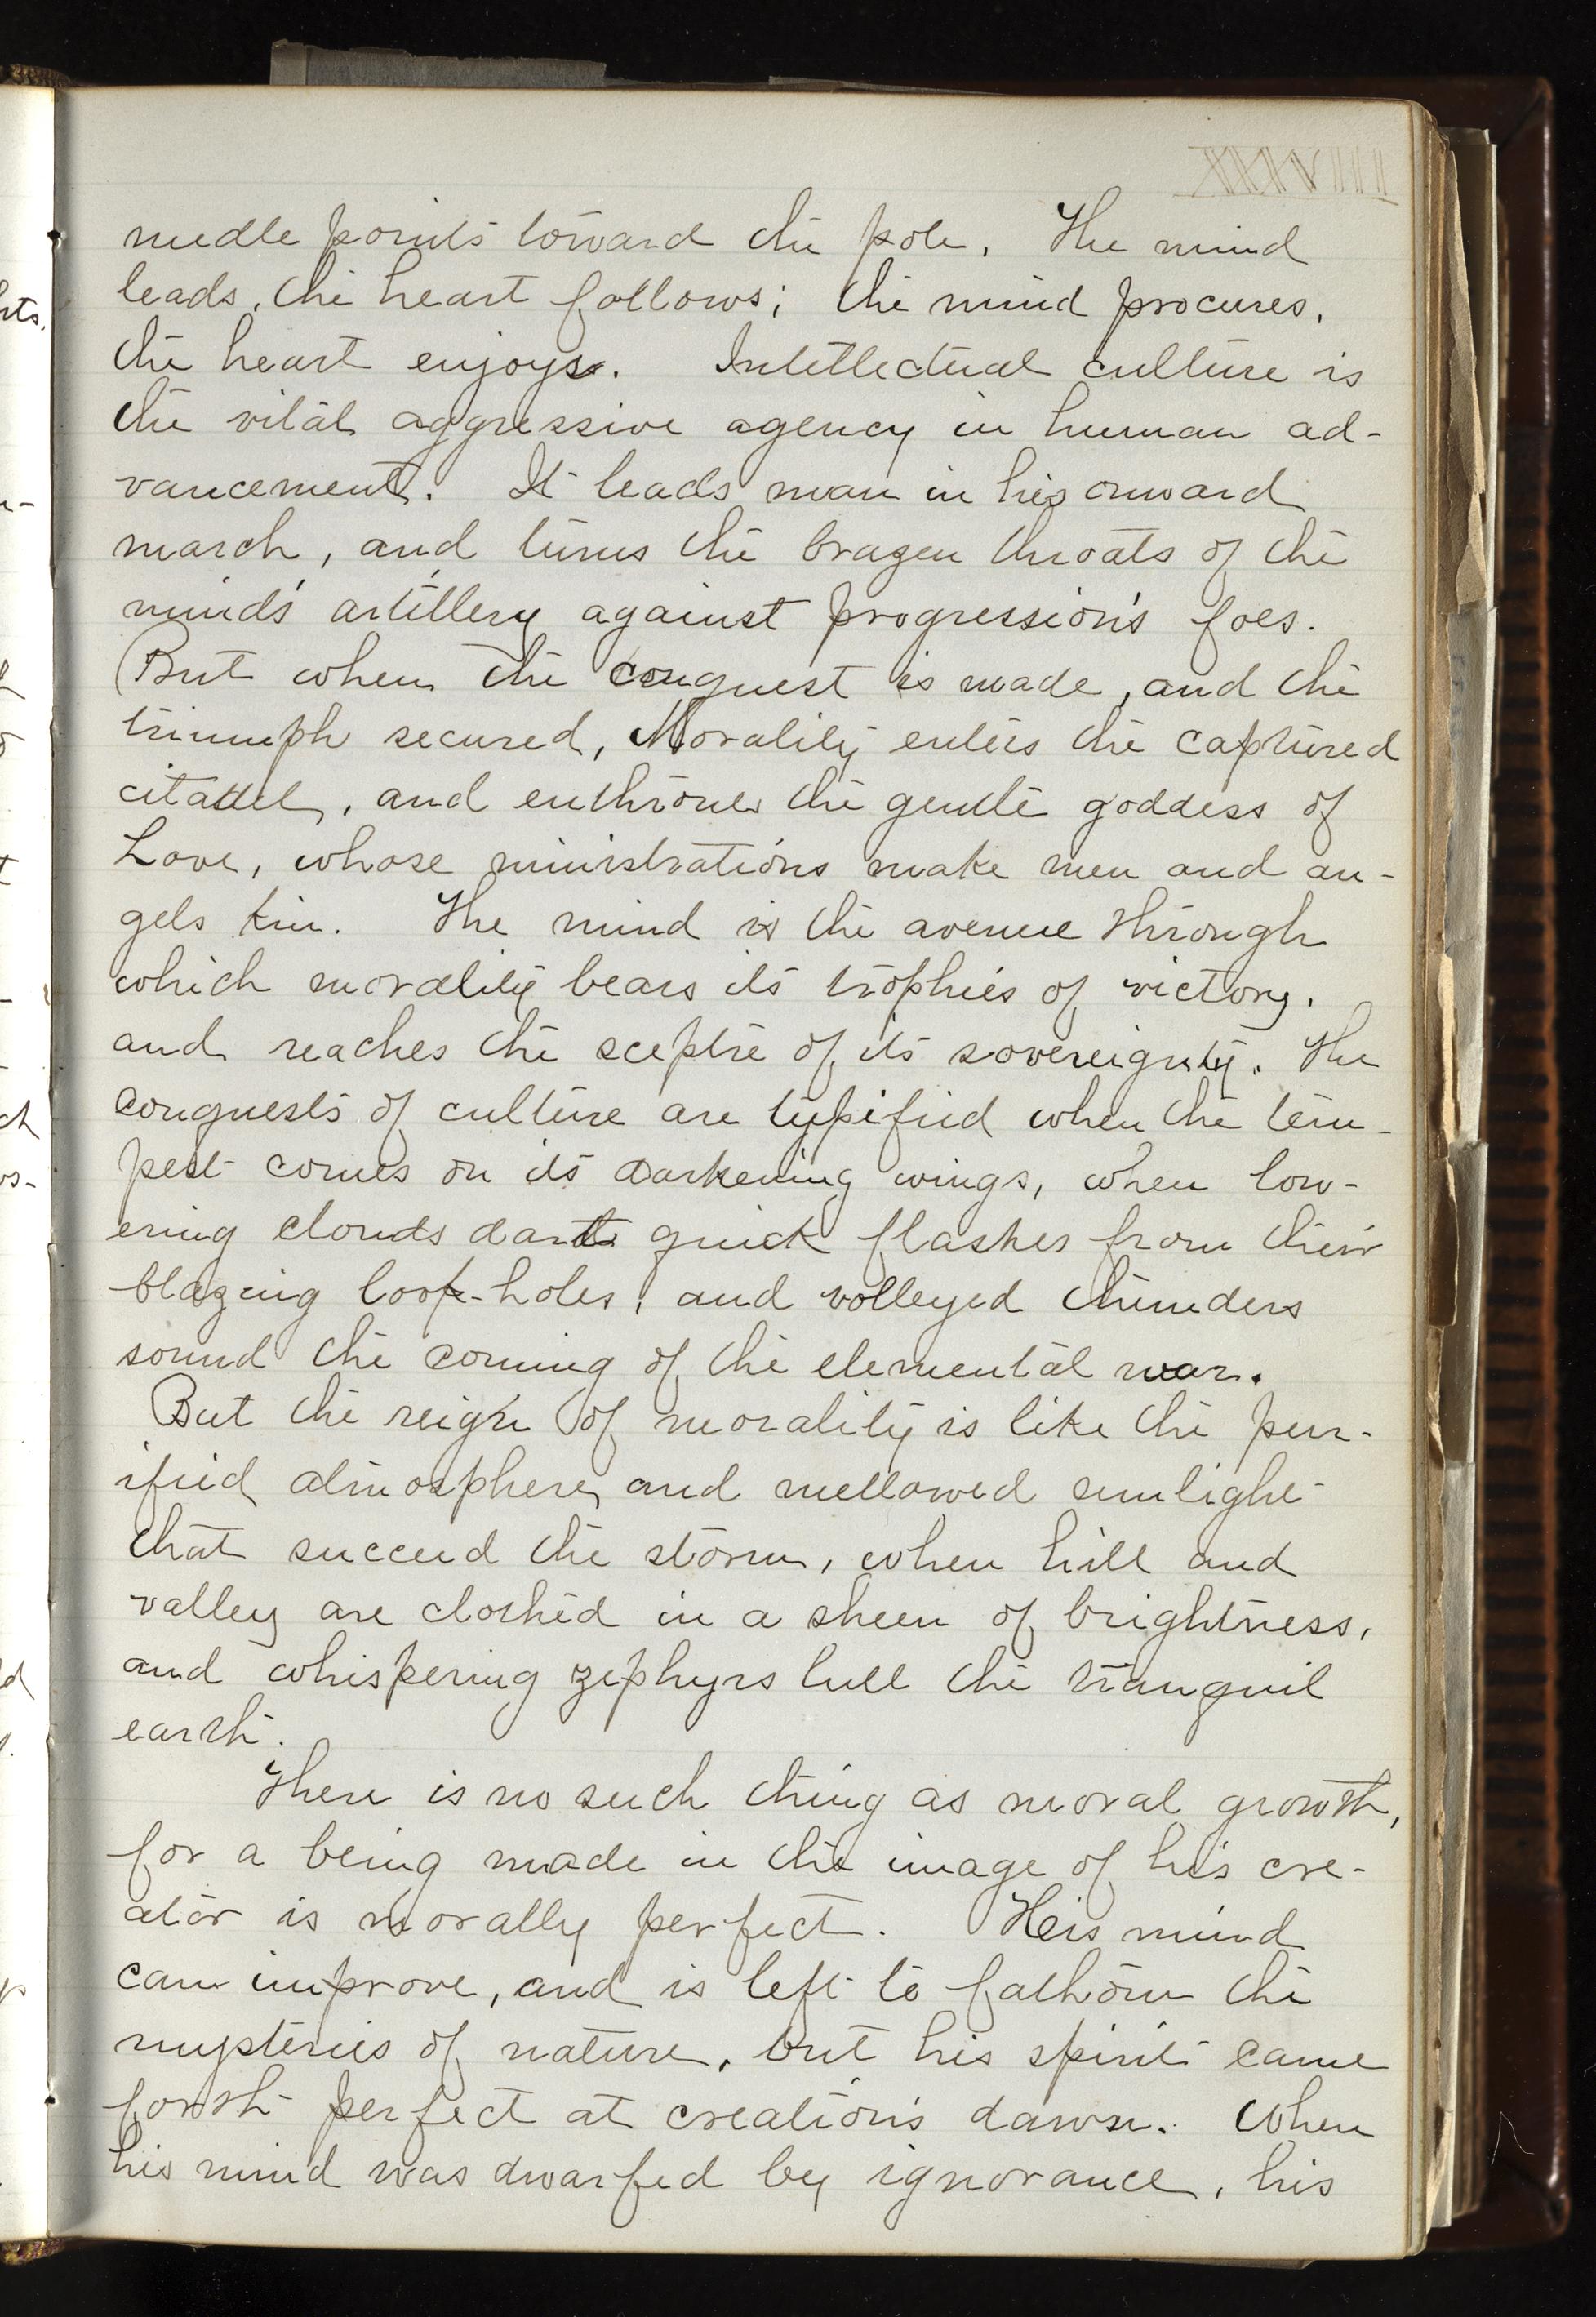 XXXVIII
needle points toward the pole. The mind
leads, the heart follows; the mind procures,
the heart enjoys. Intellectual culture is
the vital aggressive agency in human ad-
vancement. It leads man in his onward
march, and turns the brazen throats of the
mind's artillery against progression's foes.
But when the conquest is made, and the
triumph secured, Morality enters the captured
citadel, and enthrones the gentle goddess of
Love, whose ministrations make men and an-
gels kin. The mind is the avenue through
which morality bears its trophies of victory,
and reaches the sceptre of its sovereignty. The
conquests of culture are typified when the tem-
pest comes on its darkening wings, when low-
ering clouds dart quick flashes from their
blazing loop-holes, and volleyed thunders
sound the coming of the elemental war.
But the reign of morality is like the pur-
ified atmosphere, and mellowed sunlight
that succeed the storm, when hill and
valley are clothed in a sheen of brightness,
and whispering zephyrs lull the tranquil
earth.
There is no such thing as moral growth,
for a being made in the image of his cre-
ator is morally perfect. His mind
can improve, and is left to fathom the
mysteries of nature, but his spirit came
forth perfect at creation's dawn. When
his mind was dwarfed by ignorance, his